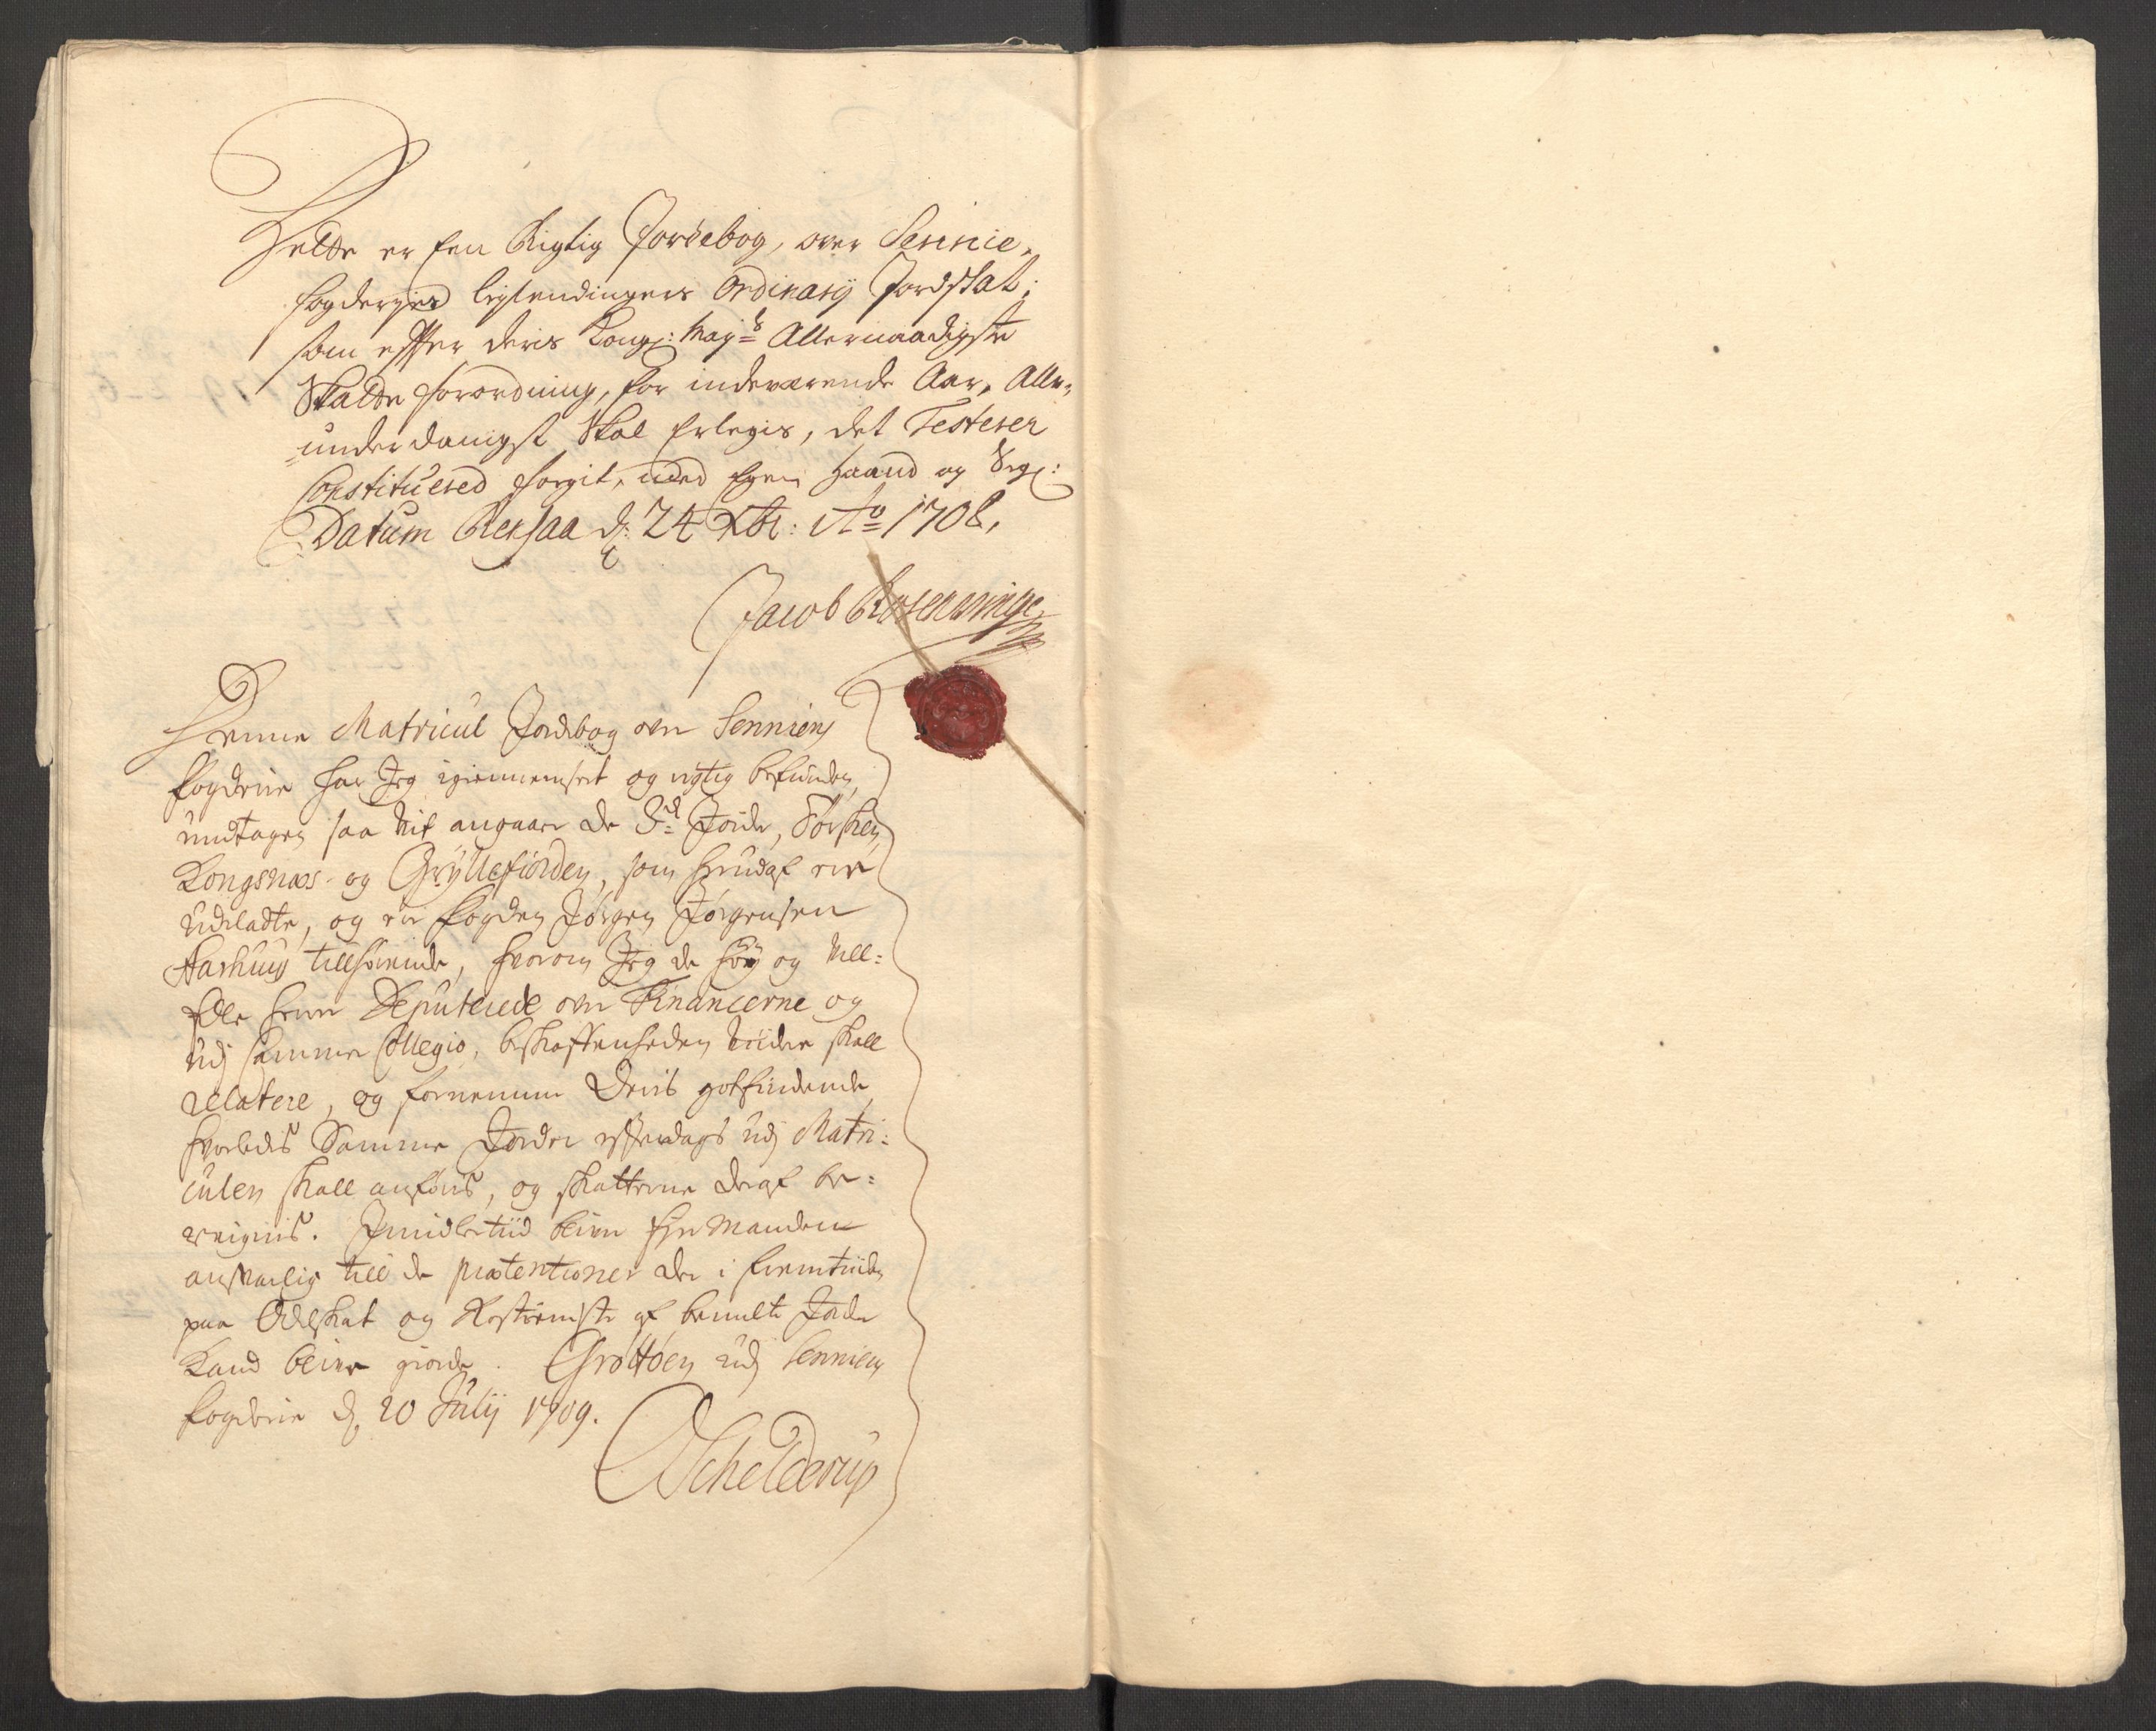 Dette er Een Rigtig Jordebog, over Sennie,
fogderjes leylendingers Ordinarij Jordskat;
som effter deris Kongl: Mayts Allernaadigste
Skatte forordning, for indeværende Aar, Aller,
underdanigst Skal Erlegis, det Testerer
Constituered forgit, med Egen Haand og Sigl:
Datum d: 24 Xbr: Ao 1708,
Jacob Rosenwinge
Denne Matricul Jordebog over Senniens
fogderie har Jeg igiennemseet og rigtig befunden,
undtagen saa vit angaar de 3de Jorder, Torsken,
Kongsnæs og Gryllefiorden, som
udeladte, og er fogden Jørgen Jørgensen
Aarhuus tillhørende, hvorom Jeg de høy og Vell:
Edle herrer Deputerede over Financerne og
udj samme Collegio, beskaffenheden viidere skall
relatere, og fornemme Deris gotfindende
hvorledis Samme Jorder effterdags udj Matri:
culen skall anføris, og skatterne deraf be:
regnis. Imidlertiid bliver
ansvarlig till de prætentioner der i fremtiiden
paa Odelskat og Rostieniste af bemelte Jorder
Kand blive giorde. Grøttøen udj Senniens
fogderie d. 20 Julij 1709.
Schelderup